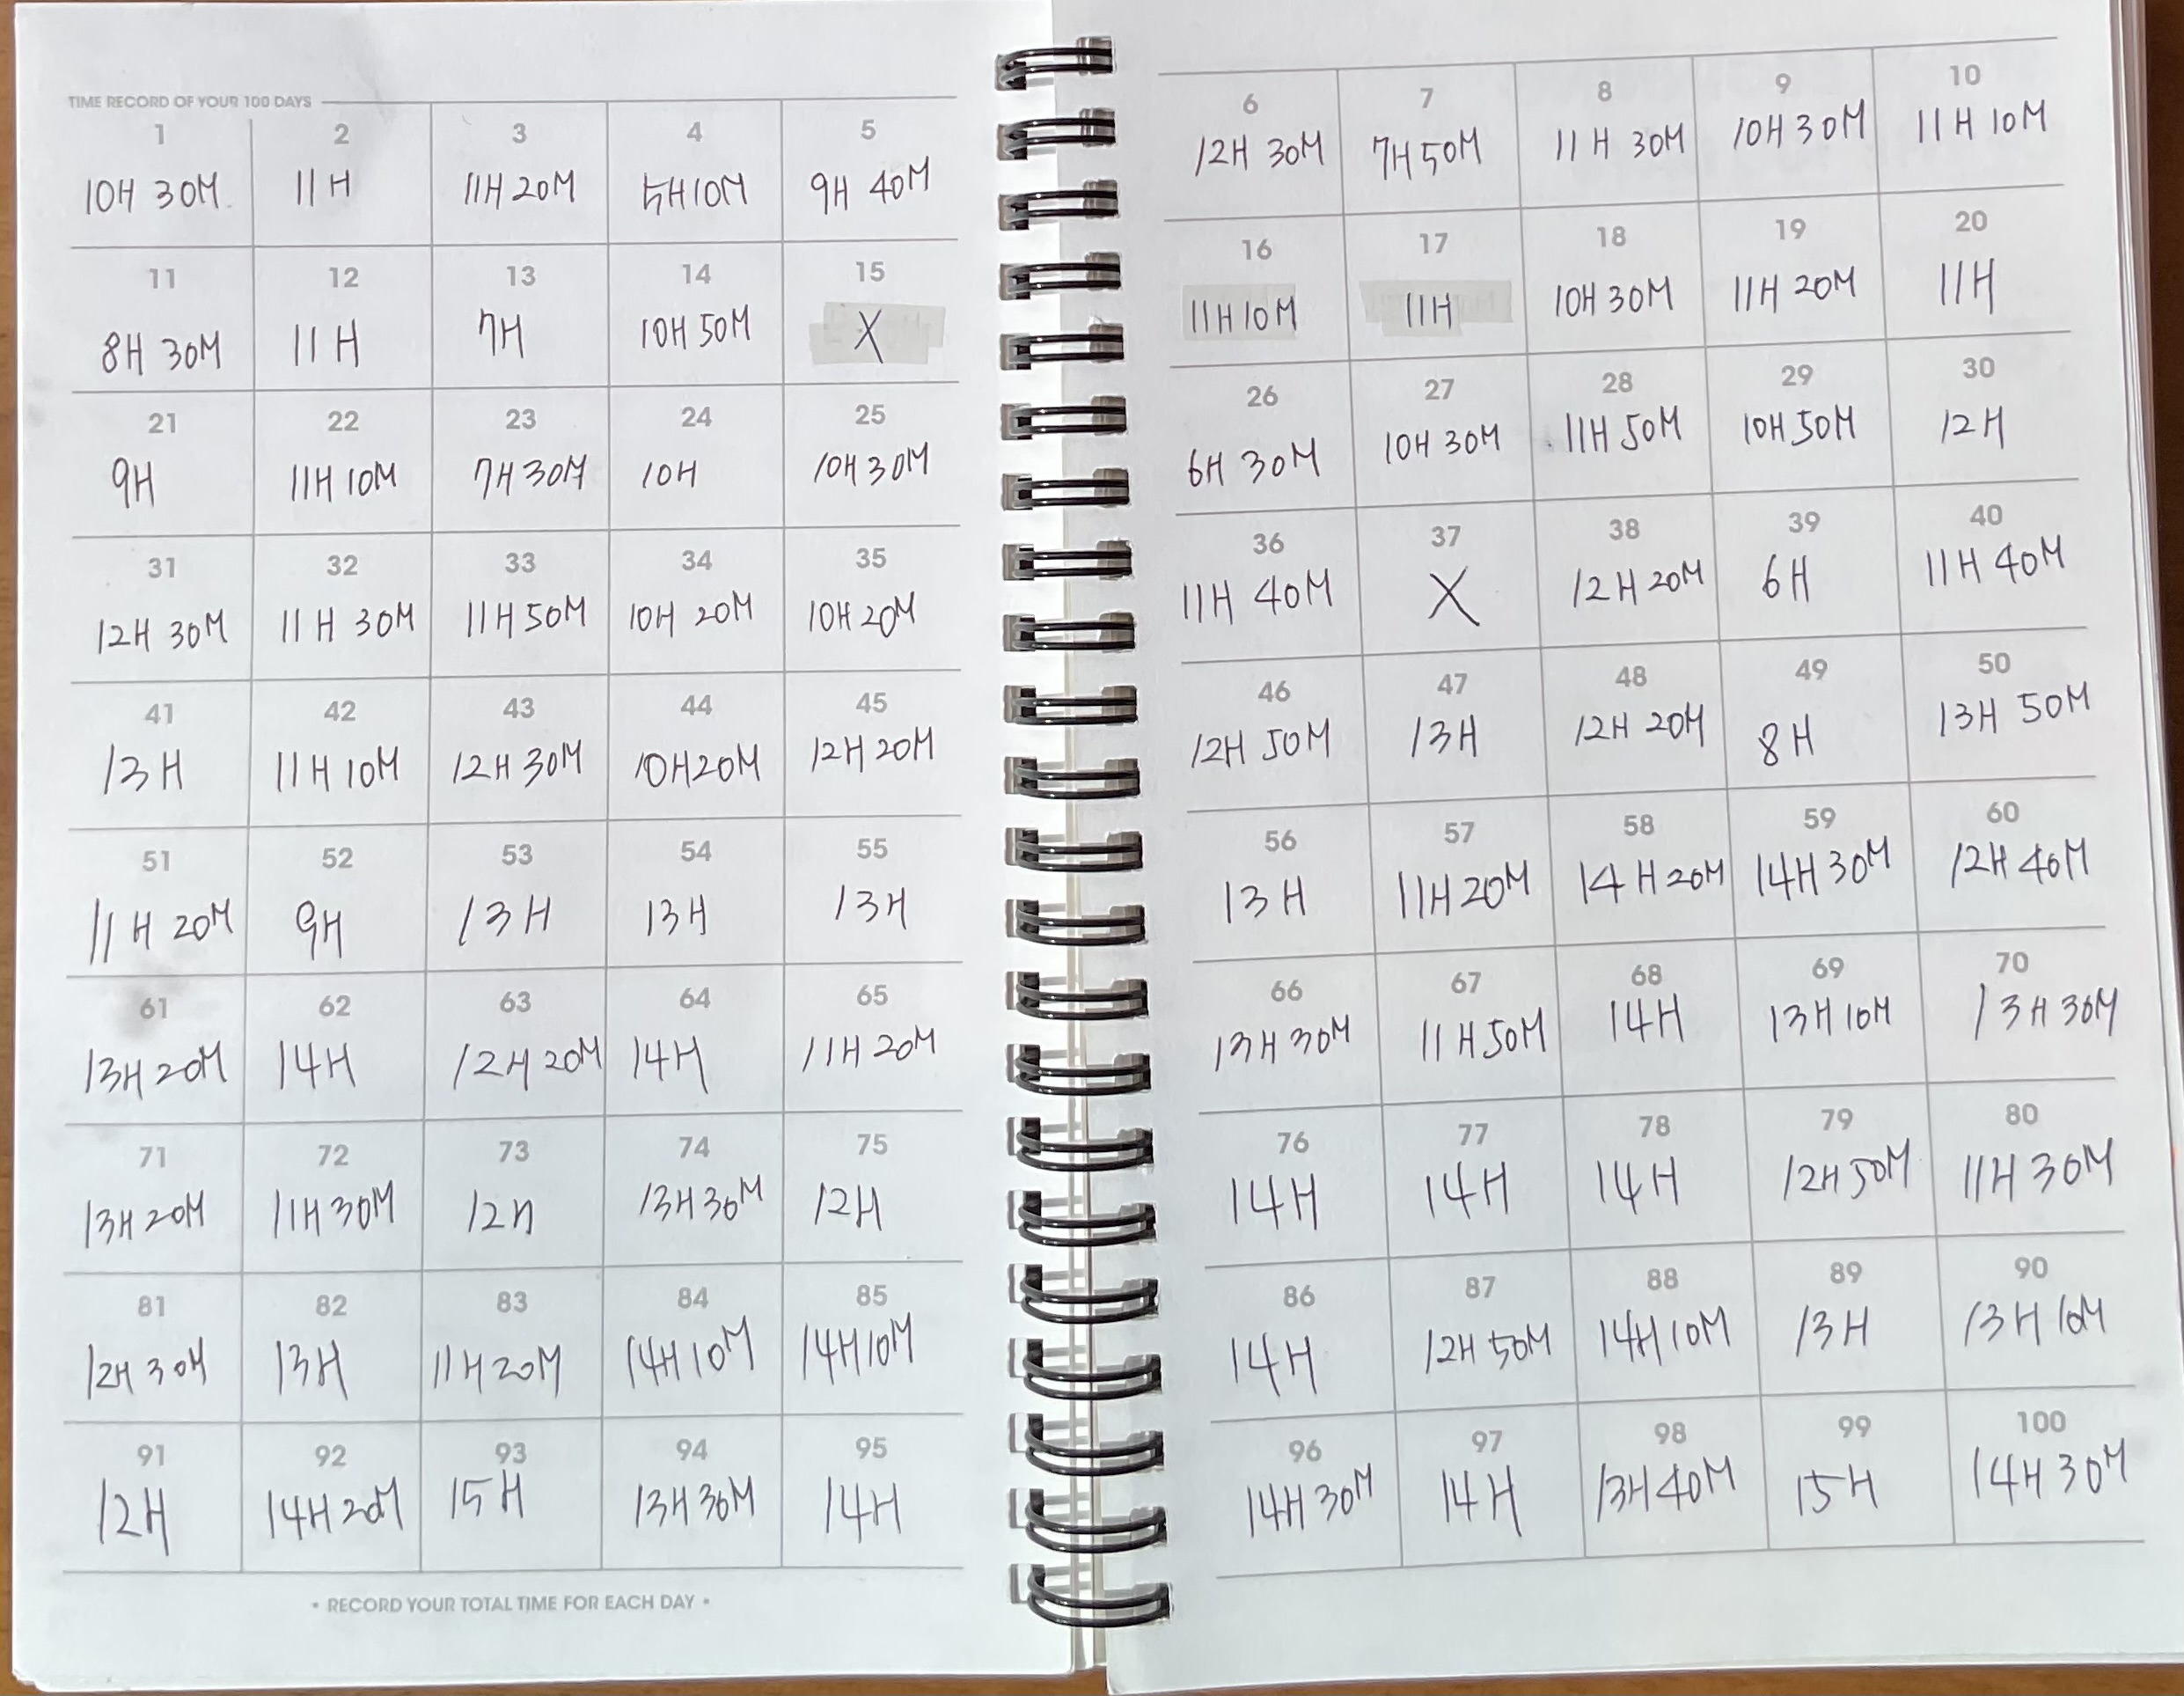 TIME RECORD OF YOUR 100 DAYS
1 2 3 4 5 6 7 8 9 10
10H 30M 11H 11H 20M 5H10M 9H 40M 12H 30M 7H 50M 11H 30M 10H 30M 11H 10M
11 12 13 14 15 16 17 18 19 20
8H 30M 11H 7H 10H 50M X 11H10M 11H 10H 30M 11H 20M 11H
21 22 23 24 25 26 27 28 29 30
9H 11H 10M 7H 30M 10H 10H 30M 6H 30M 10H 30M 11H 50M 10H 50M 12H
31 32 33 34 35 36 37 38 39 40
12H 30M 11H 30M 11H 50M 10H 20M 10H 20M 11H 40M X 12H 20M 6H 11H 40M
41 42 43 44 45 46 47 48 49 50
13H 11H 10M 12H 30M 10H20M 12H 20M 12H 50M 13H 12H 20M 8H 13H 50M
51 52 53 54 55 56 57 58 59 60
11H 20M 9H 13H 13H 13H 13H 11H 20M 14H 20M 14H 30M 12H 40M
61 62 63 64 65 66 67 68 69 70
13H 20M 14H 12H 20M 14H 11H 20M 13H 30M 11H 50M 14H 13H 10M 13H 30M
71 72 73 74 75 76 77 78 79 80
13H 20M 11H 30M 12H 13H 30M 12H 14H 14H 14H 12H 50M 11H 30M
81 82 83 84 85 86 87 88 89 90
12H 30M 13H 11H 20M 14H 10M 14H 10M 14H 12H 50M 14H 10M 13H 13H 10M
91 92 93 94 95 96 97 98 99 100
12H 14H 20M 15H 13H 30M 14H 14H 30M 14H 13H 40M 15H 14H 30M
• RECORD YOUR TOTAL TIME FOR EACH DAY •